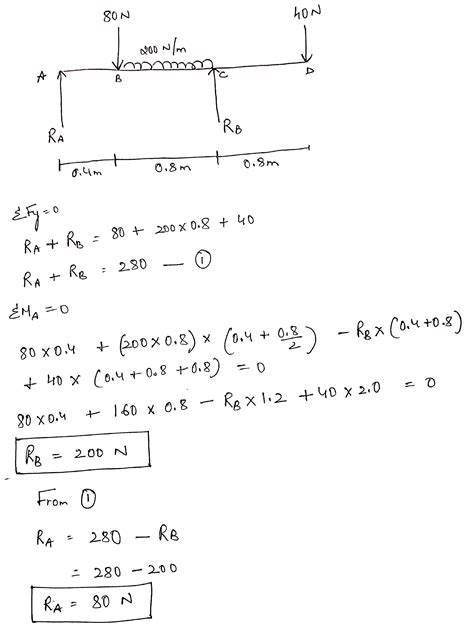 80N 40N
200 N/m
A B C D
RA RB
0.4m 0.8m 0.8m
ΣFy=0
RA + RB = 80 + 200x0.8 + 40
RA + RB = 280 — ①
ΣMA = 0
80 x 0.4 + (200 x 0.8) x (0.4 + 0.8/2) - RB x (0.4+0.8)
+ 40 x (0.4 + 0.8 + 0.8) = 0
80 x 0.4 + 160 x 0.8 - RB x 1.2 + 40 x 2.0 = 0
RB = 200 N
From ①
RA = 280 - RB
= 280 - 200
RA = 80 N